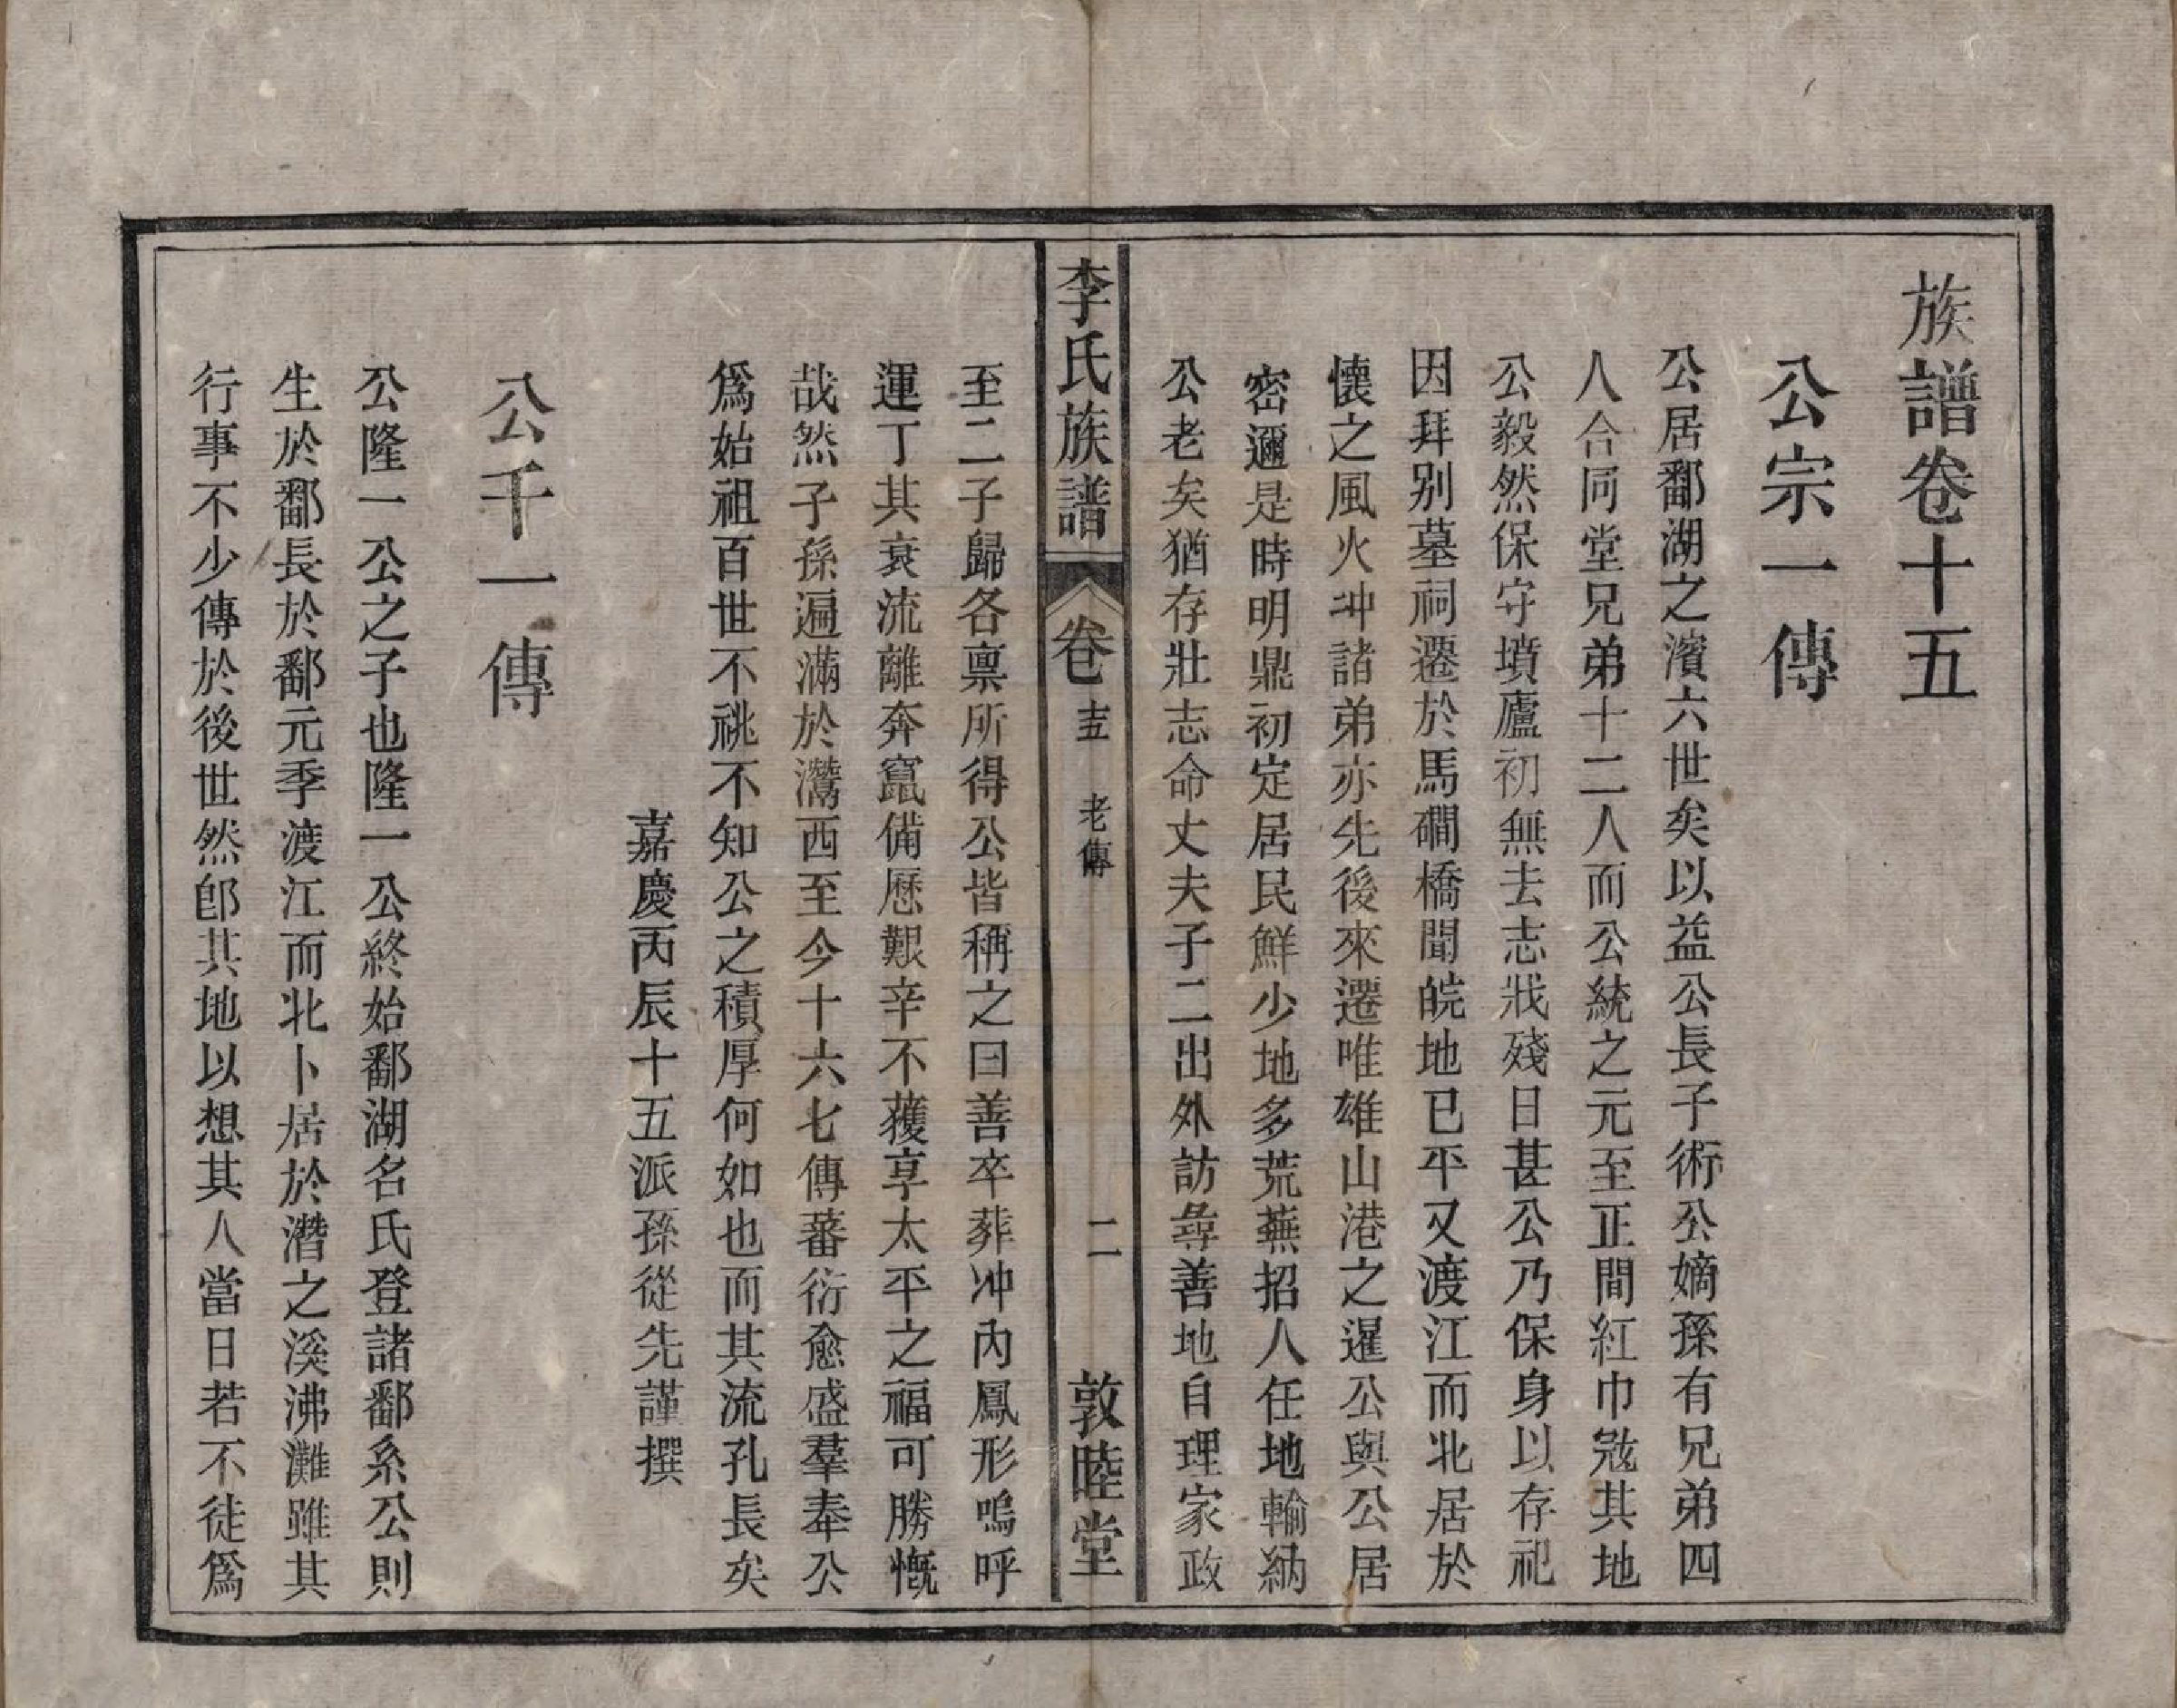 族譜卷十五
公宗一傳
公居鄱湖之濱六世矣以益公長子術公嫡孫有兄弟四
人合同堂兄弟十二人而公統之元至正間紅巾宼其地
公毅然保守墳廬初無去志戕殘日甚公乃保身以存祀
因拜別墓祠遷於馬磵橋聞皖地已平又渡江而北居於
懷之風火冲諸弟亦先後來遷唯雄山港之暹公與公居
密邇是時明鼎初定居民鮮少地多荒蕪招人任地輸納
公老矣猶存壯志命丈夫子二出外訪尋善地自理家政
李氏族譜 卷十五 老傳 二 敦睦堂
至二子歸各禀所得公皆稱之曰善卒葬冲內鳳形嗚呼
運丁其衰流離奔竄備歷艱辛不獲享太平之福可勝慨
哉然子孫遍滿於灊西至今十六七傳蕃衍愈盛羣奉公
爲始祖百世不祧不知公之積厚何如也而其流孔長矣
嘉慶丙辰十五派孫從先謹撰
公千一傳
公隆一公之子也隆一公終始鄱湖名氏登諸鄱系公則
生於鄱長於鄱元季渡江而北卜居於潛之溪沸灘雖其
行事不少傳於後世然卽其地以想其人當日若不徒爲